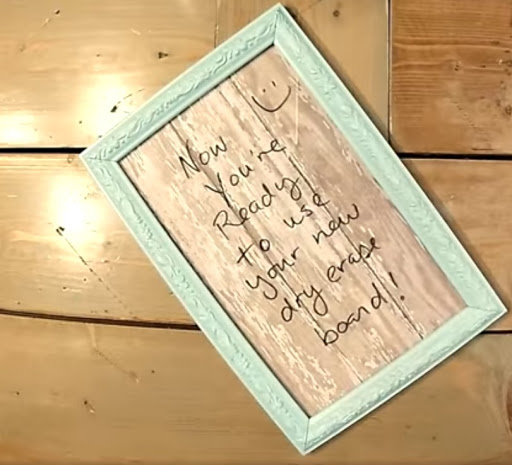 Now
You're
Ready
to use
your new
dry erase
board!